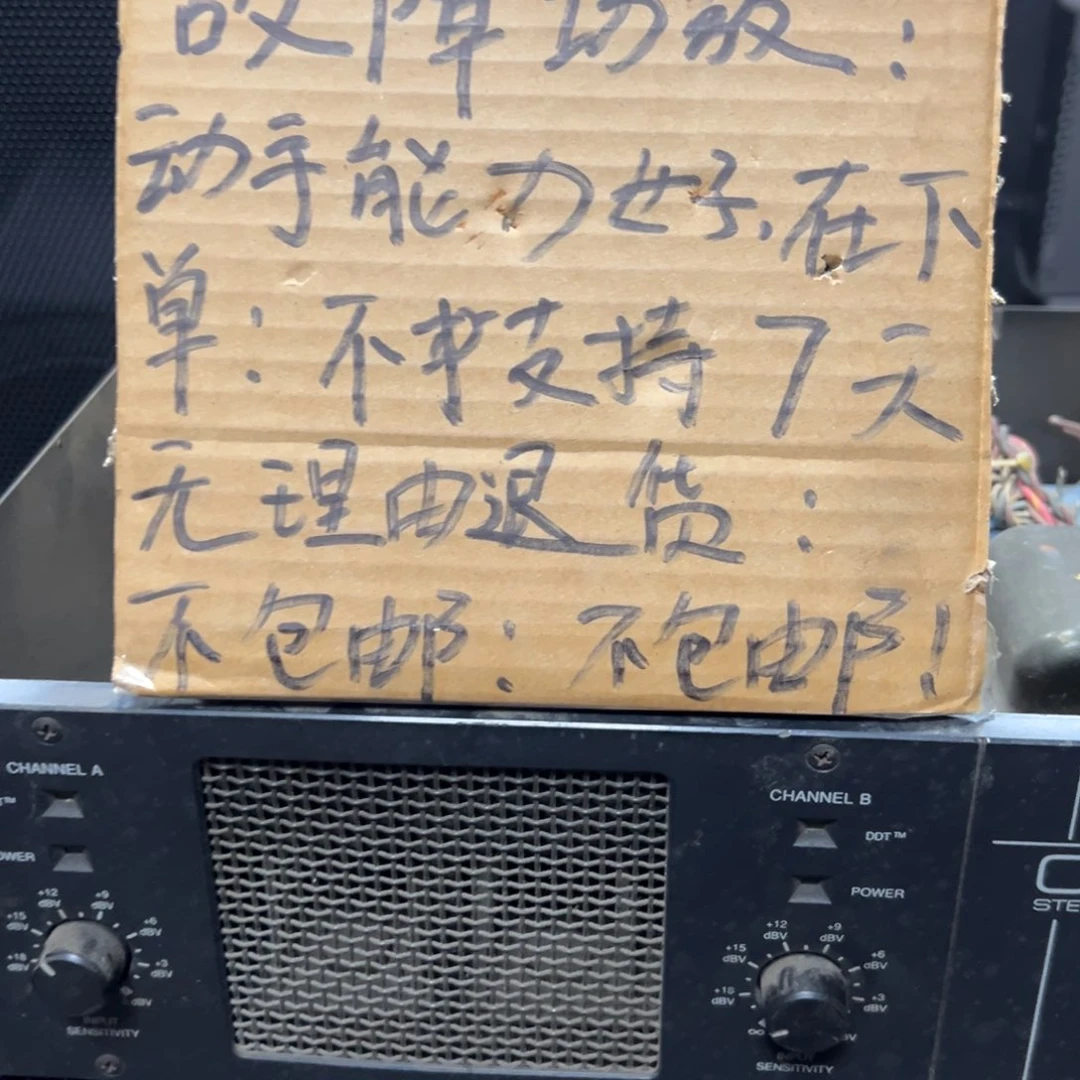 故障功放：
动手能力好，在下
单：不支持7天
无理由退货：
不包邮：不包邮！
CHANNEL A
POWER
+12 dBV
+9 dBV
+15 dBV
+6 dBV
+18 dBV
+3 dBV
dBV
INPUT SENSITIVITY
CHANNEL B
DDT™
POWER
+12 dBV
+9 dBV
+15 dBV
+6 dBV
+18 dBV
+3 dBV
∞
INPUT SENSITIVITY
STE